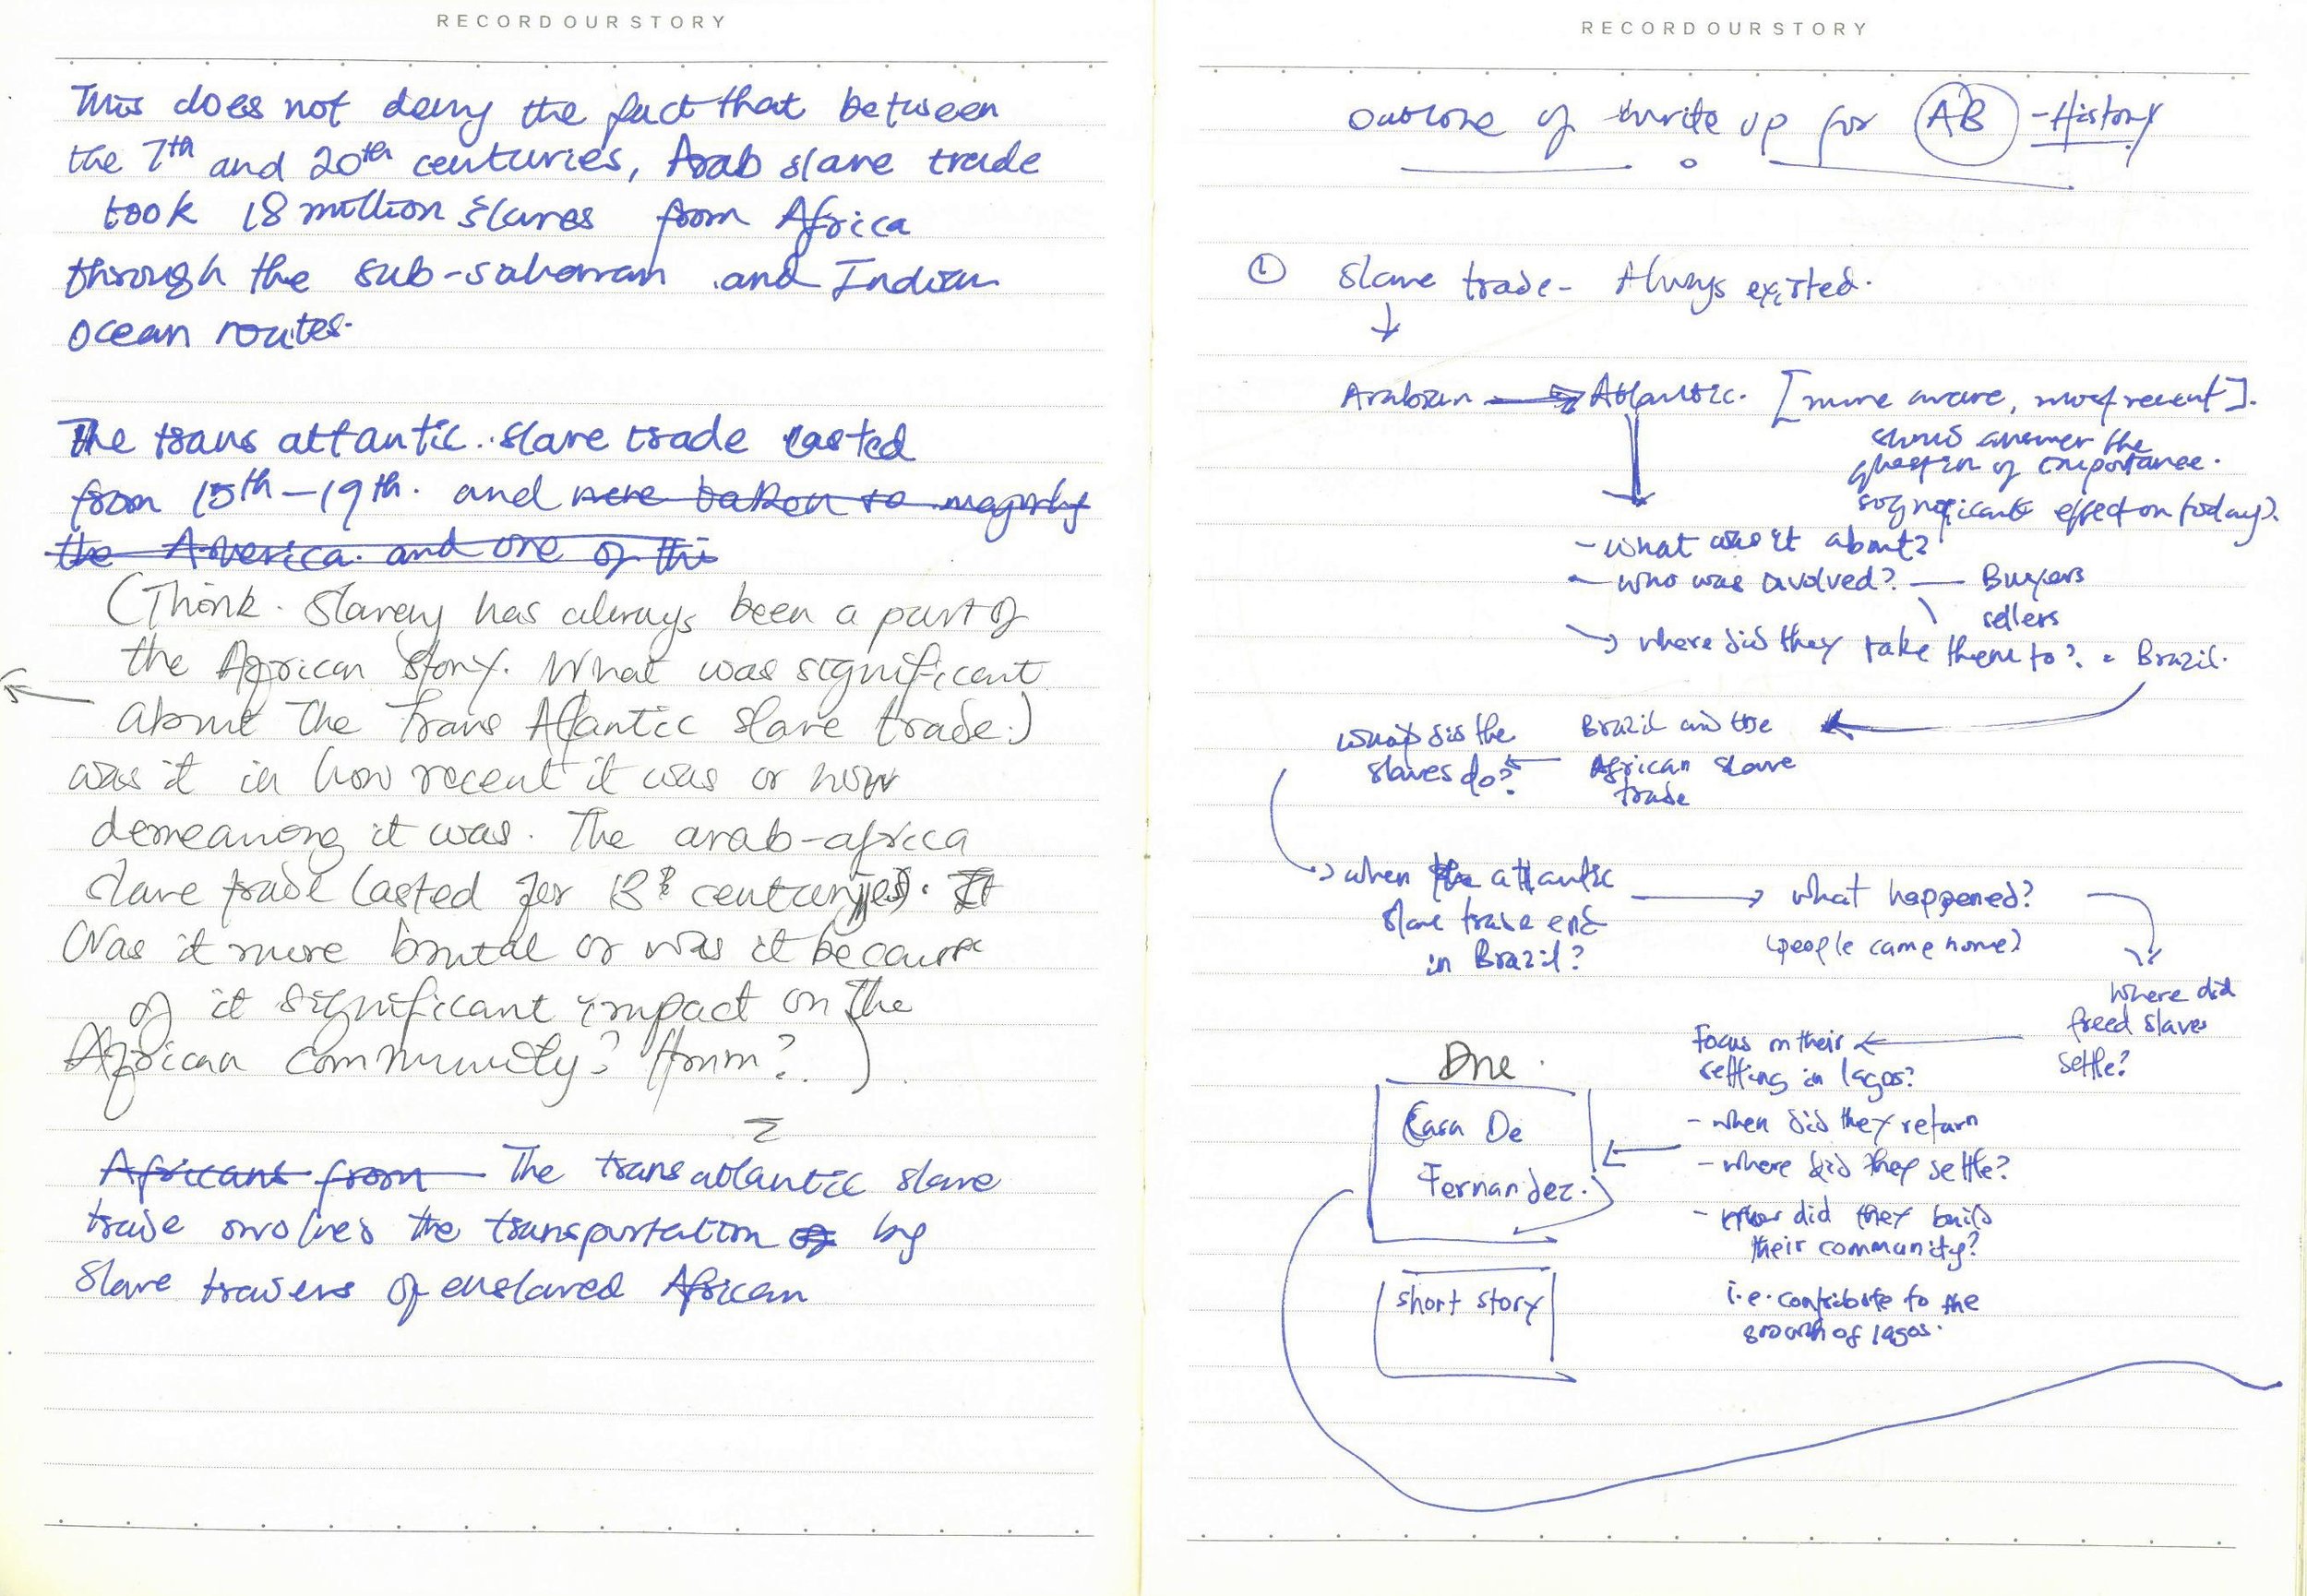 RECORD OUR STORY
This does not deny the fact that between
the 7th and 20th centuries, Arab slave trade
took 18 million slaves from Africa
through the sub-saharan and Indian
ocean routes.
The trans attantic slave trade lasted
from 15th-19th. and were taken to majority
the America and one of thi
(Think. Slavery has always been a part of
the African story. What was significant
about The Trans Atlantic slave trade.)
was it in how recent it was or how
demeaning it was. The arab-africa
slave trade lasted for 13 centuries. It
Was it more brutal or was it because
of it significant impact on The
African community? Hmm?)
Africans from The transatlantic slave
trade involves the transportation of by
slave traders of enslaved African
RECORD OUR STORY
outline of write up for AB - History
① Slave trade - Always existed.
Arabian → Atlantic. [more aware, most recent].
answer the
question of importance.
significant effect on today).
- what was it about?
- who was involved? — Buyers
sellers
→ where did they take them to? = Brazil.
what did the
slaves do?
Brazil and the
African slave
trade
→ when the attantic
slave trade end
in Brazil?
→ what happened?
(people came home)
where did
freed slaves
settle?
Focus on their
settling in lagos?
- when did they return
- where did they settle?
- How did they build
their community?
i.e. contribute to the
growth of lagos.
One.
Casa De
Fernandez.
short story